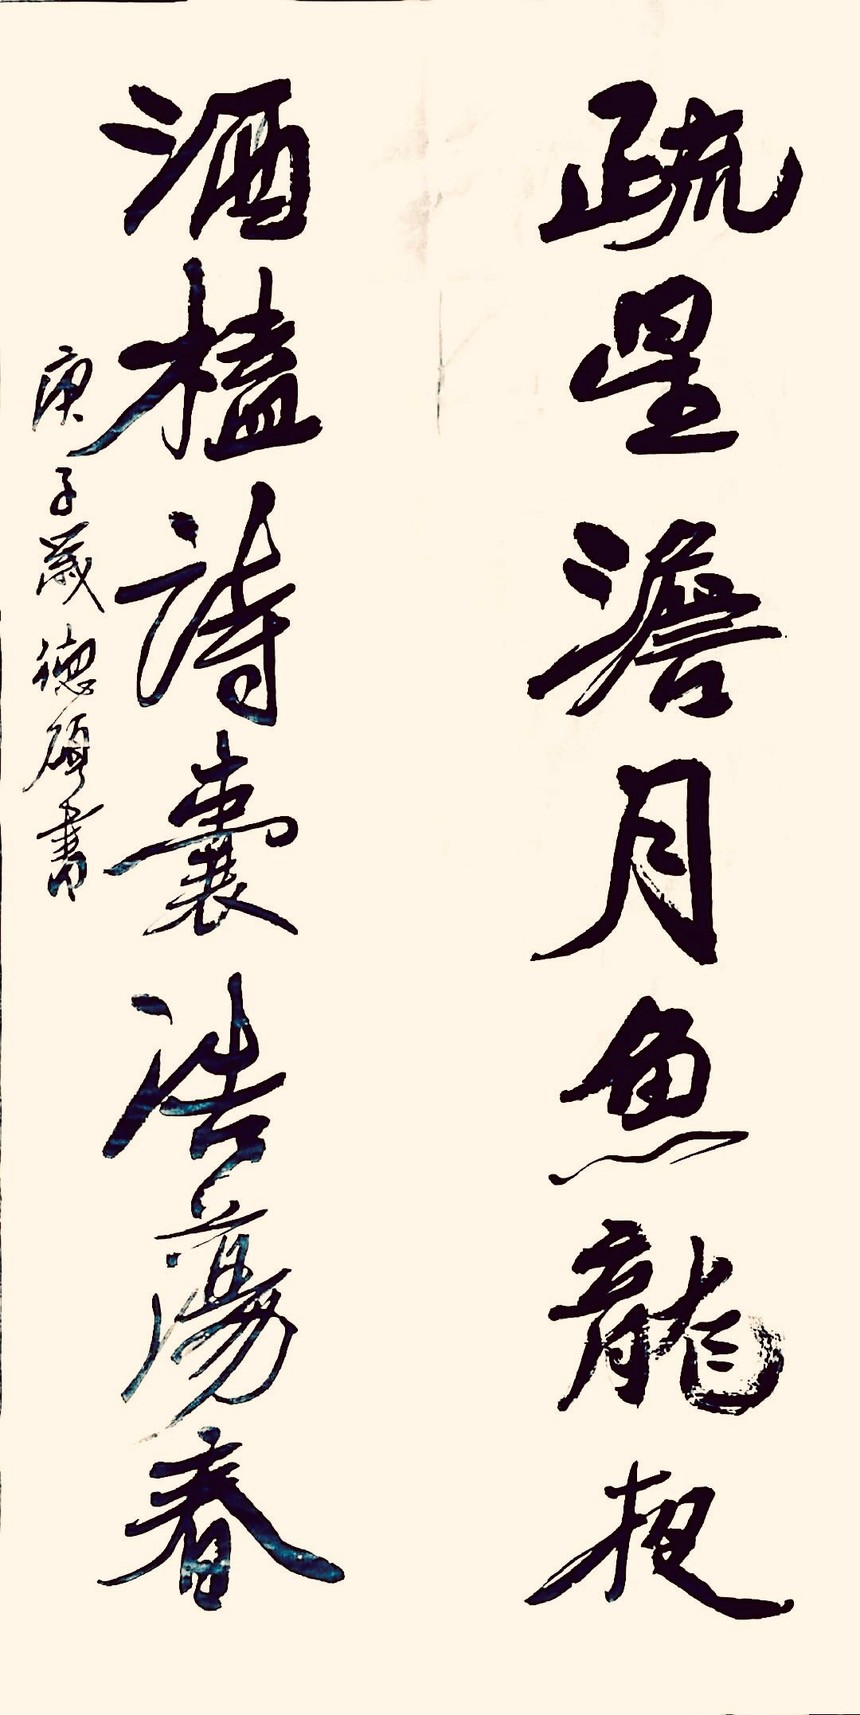 疏星澹月魚龍夜
酒榼詩囊浩蕩春
庚子歲德碩書